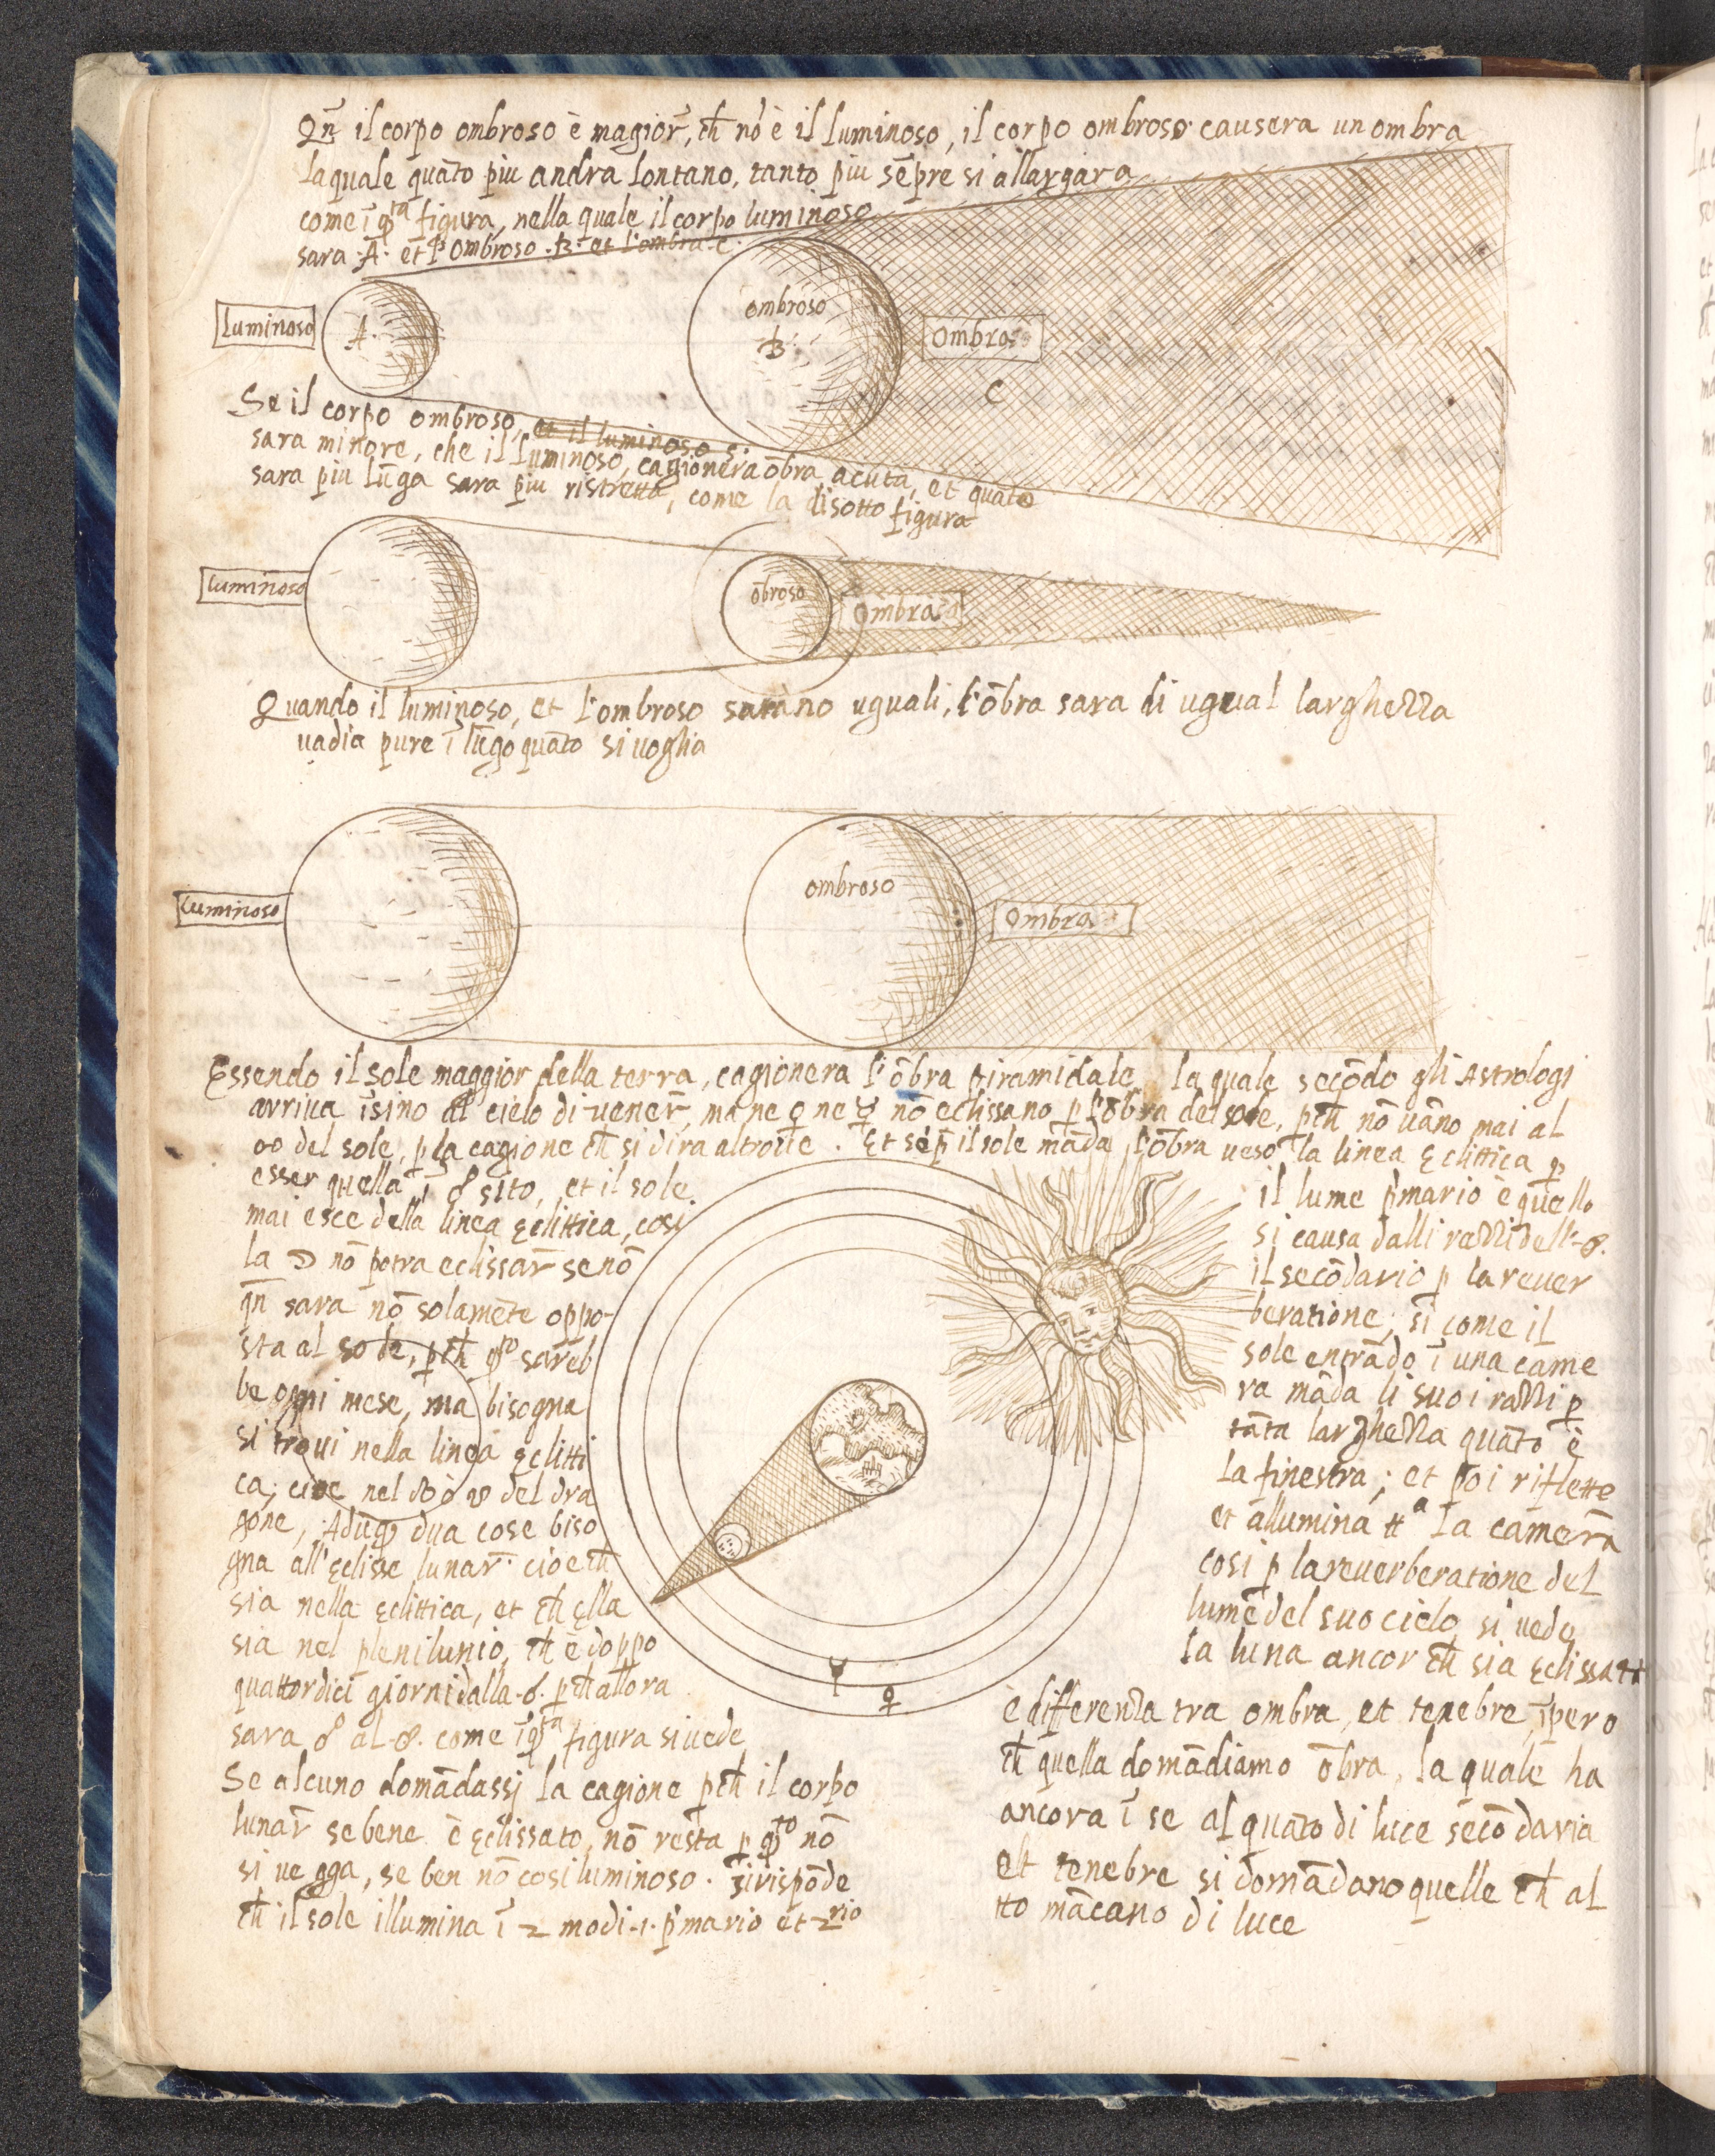 Qñ il corpo ombroso è magior̃, ch̃ nõ è il luminoso, il corpo ombroso causera un ombra
laquale quãto piu andra lontano, tanto piu sẽpre si allargara
come ĩ q̃ta figura, nella quale il corpo luminoso
sara .A. et l'ombroso .B. et l'ombra c.
Luminoso
A.
ombroso
B
Ombra
C
Se il corpo ombroso, et il luminoso s.
sara minore, che il luminoso, cagionera õbra acuta, et quãto
sara piu lũga sara piu ristretta, come la disotto figura
Luminoso
õbroso
Ombra
Quando il luminoso, et l'ombroso sarãno uguali, l'õbra sara di ugual larghezza
vadia pure ĩ lũgo quãto si voglia
Luminoso
ombroso
Ombra
Essendo il sole maggior della terra, cagionera l'õbra piramidale la quale secõdo gli Astrologi
arriva ĩsino al cielo di vener̃, ma ne ♀ ne ☿ nõ eclissano p l'õbra del sole, pch̃ nõ vãno mai al
☍ del sole, p la cagione ch̃ si dira altrove. Et sẽp̃ il sole mãda l'õbra verso la linea Eclittica p
esser quella ĩ ☍ sito, et il sole
mai esce della linea Eclittica, cosi
la ☽ nõ potra eclissar̃ se nõ
qñ sara nõ solamẽte oppo-
sta al sole, pch̃ q̃sto sareb
be ogni mese, ma bisogna
si trovi nella linea Eclitti
ca, cioe nel ☊ ò ☋ del dra
gone, Adũq̃ dua cose biso
gna all'Eclisse lunar̃. cioe ch̃
sia nella Eclittica, et ch̃ ella
sia nel plenilunio, ch̃ è doppo
quattordici giorni dalla ☌. pch̃ allora
sara ☍ al ☉. come ĩ q̃ta figura si vede
Se alcuno domãdassi la cagione pch̃ il corpo
lunar̃ se bene è Eclissato, nõ resta p q̃to nõ
si vegga, se ben nõ cosi luminoso. si rispõde
ch̃ il sole illumina ĩ 2 modi .1. p̃mario et 2rio
☿
♀
il lume p̃mario è quello
si causa dalli razzi dell ☉.
il secõdario p la rever
beratione; si come il
sole entrãdo ĩ una came
ra mãda li suoi razzi p
tãta larghezza quãto è
la finestra; et poi riflette
et allumina tta la camera
cosi p la reverberatione del
lume del suo cielo si vede
la luna ancor ch̃ sia Eclissata
è differenza tra ombra, et tenebre, ĩpero
ch̃ quella domãdiamo õbra, la quale ha
ancora ĩ se al quãto di luce secõdaria
et tenebre si domãdano quelle ch̃ al
tto mãcano di luce